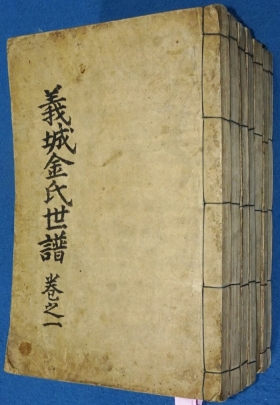 義城金氏世譜 卷之一